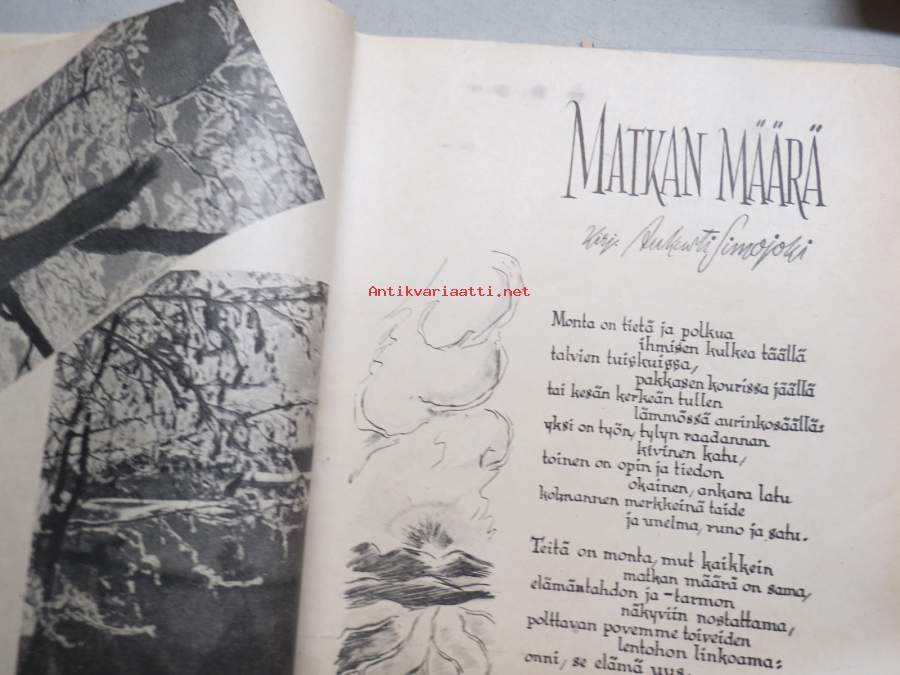 MATKAN MÄÄRÄ
Kirj. Aukusti Simojoki
Antikvariaatti.net
Monta on tietä ja polkua
ihmisen kulkea täällä
talvien tuiskuissa,
pakkasen kourissa jäällä
tai kesän kerkeän tullen
lämmössä aurinkosäällä:
yksi on työn, tylyn raadannan
kivinen katu,
toinen on opin ja tiedon
okainen, ankara latu
kolmannen merkkeinä taide
ja unelma, runo ja satu.
Teitä on monta, mut kaikkein
matkan määrä on sama,
elämäntahdon ja -tarmon
näkyviin nostattama,
polttavan povemme toiveiden
lentohon linkoama:
onni, se elämä uus,